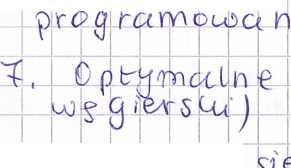 programowan
7. Optymalne
węgierski)
sie